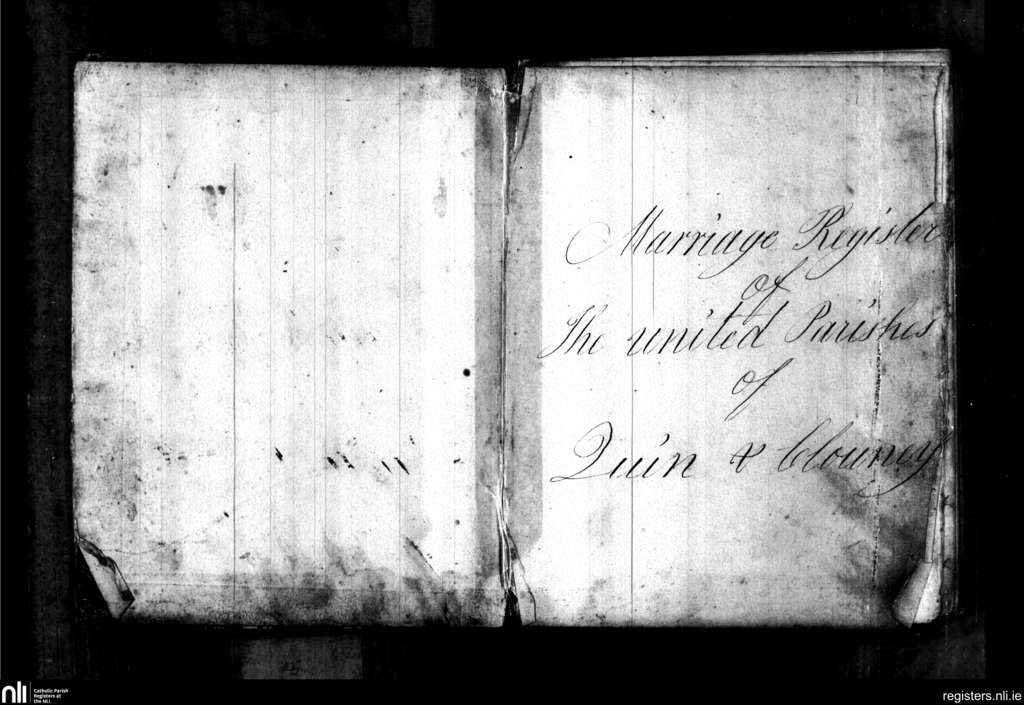 Marriage Register
of
The united Parishes
of
Quin & Clouney
nli
Catholic Parish
Registers at
the NLI
registers.nli.ie